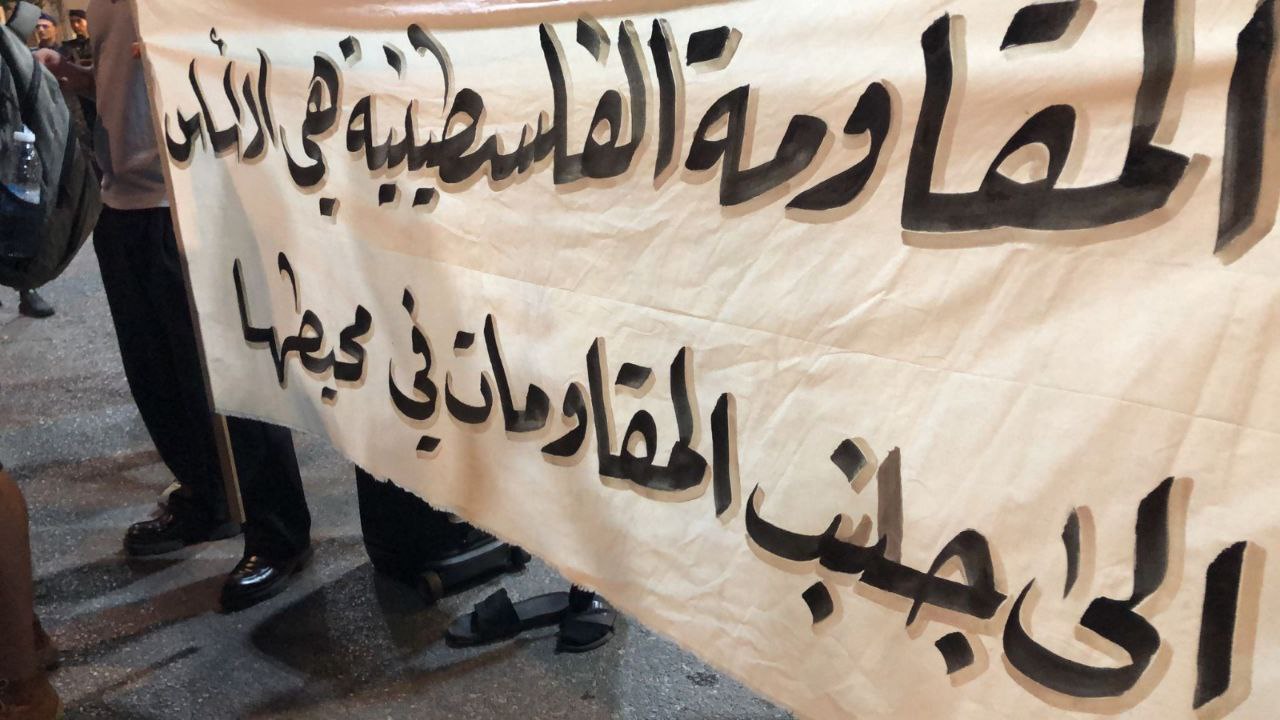 المقاومة الفلسطينية هي الأساس
الى جانب المقاومات في محيطها